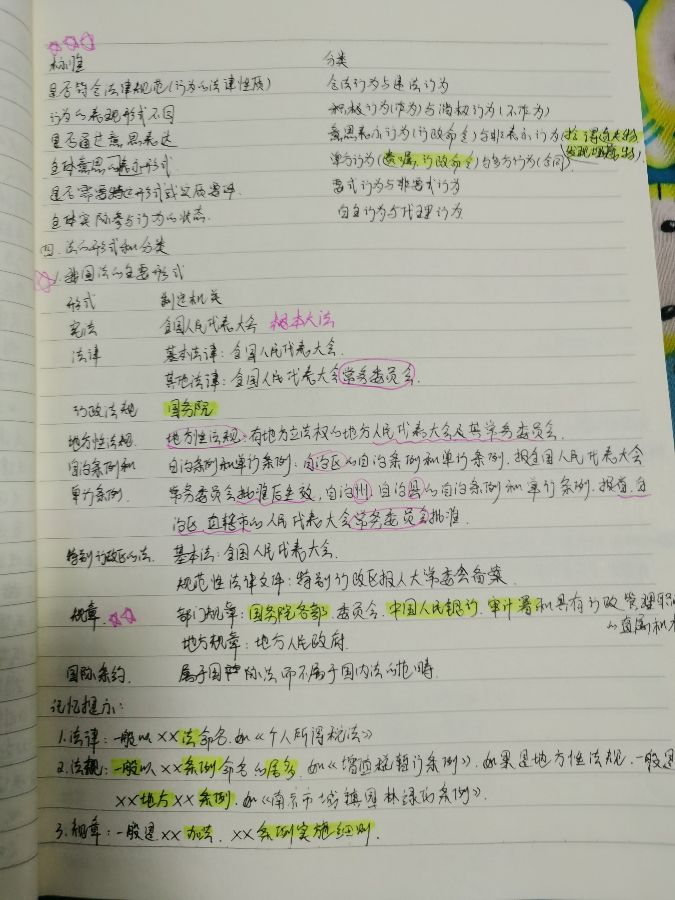 标准 分类
是否符合法律规范(行为的法律性质) 合法行为与违法行为
行为的表现形式不同 积极行为(作为)与消极行为(不作为)
是否通过意思表达 意思表示行为(行政命令)与非表示行为(拾得遗失物
发现埋藏物)
主体意思的表示形式 单方行为(遗嘱,行政命令)与多方行为(合同)
是否需要特定形式或实质要件 要式行为与非要式行为
主体实际参与行为的状态. 自主行为与代理行为
四.法的形式和分类
1.我国法的主要形式
形式 制定机关
宪法 全国人民代表大会 根本大法
法律 基本法律:全国人民代表大会.
其他法律:全国人民代表大会常务委员会.
行政法规 国务院
地方性法规. 地方性法规:有地方立法权的地方人民代表大会及其常务委员会.
自治条例和 自治条例和单行条例:自治区的自治条例和单行条例.报全国人民代表大会
单行条例. 常务委员会批准后生效,自治州,自治县的自治条例和单行条例.报省.自
治区.直辖市的人民代表大会常务委员会批准.
特别行政区的法. 基本法:全国人民代表大会.
规范性法律文件:特别行政区报人大常委会备案.
规章. 部门规章:国务院各部.委员会.中国人民银行.审计署和具有行政管理职
的直属机
地方规章:地方人民政府.
国际条约. 属于国际法而不属于国内法的范畴.
记忆提示:
1.法律:一般以××法命名.如《个人所得税法》
2.法规:一般以××条例命名的居多.如《增值税暂行条例》.如果是地方性法规.一般是
××地方××条例.如《南京市城镇园林绿的条例》.
3.规章:一般是××办法.××条例实施细则.